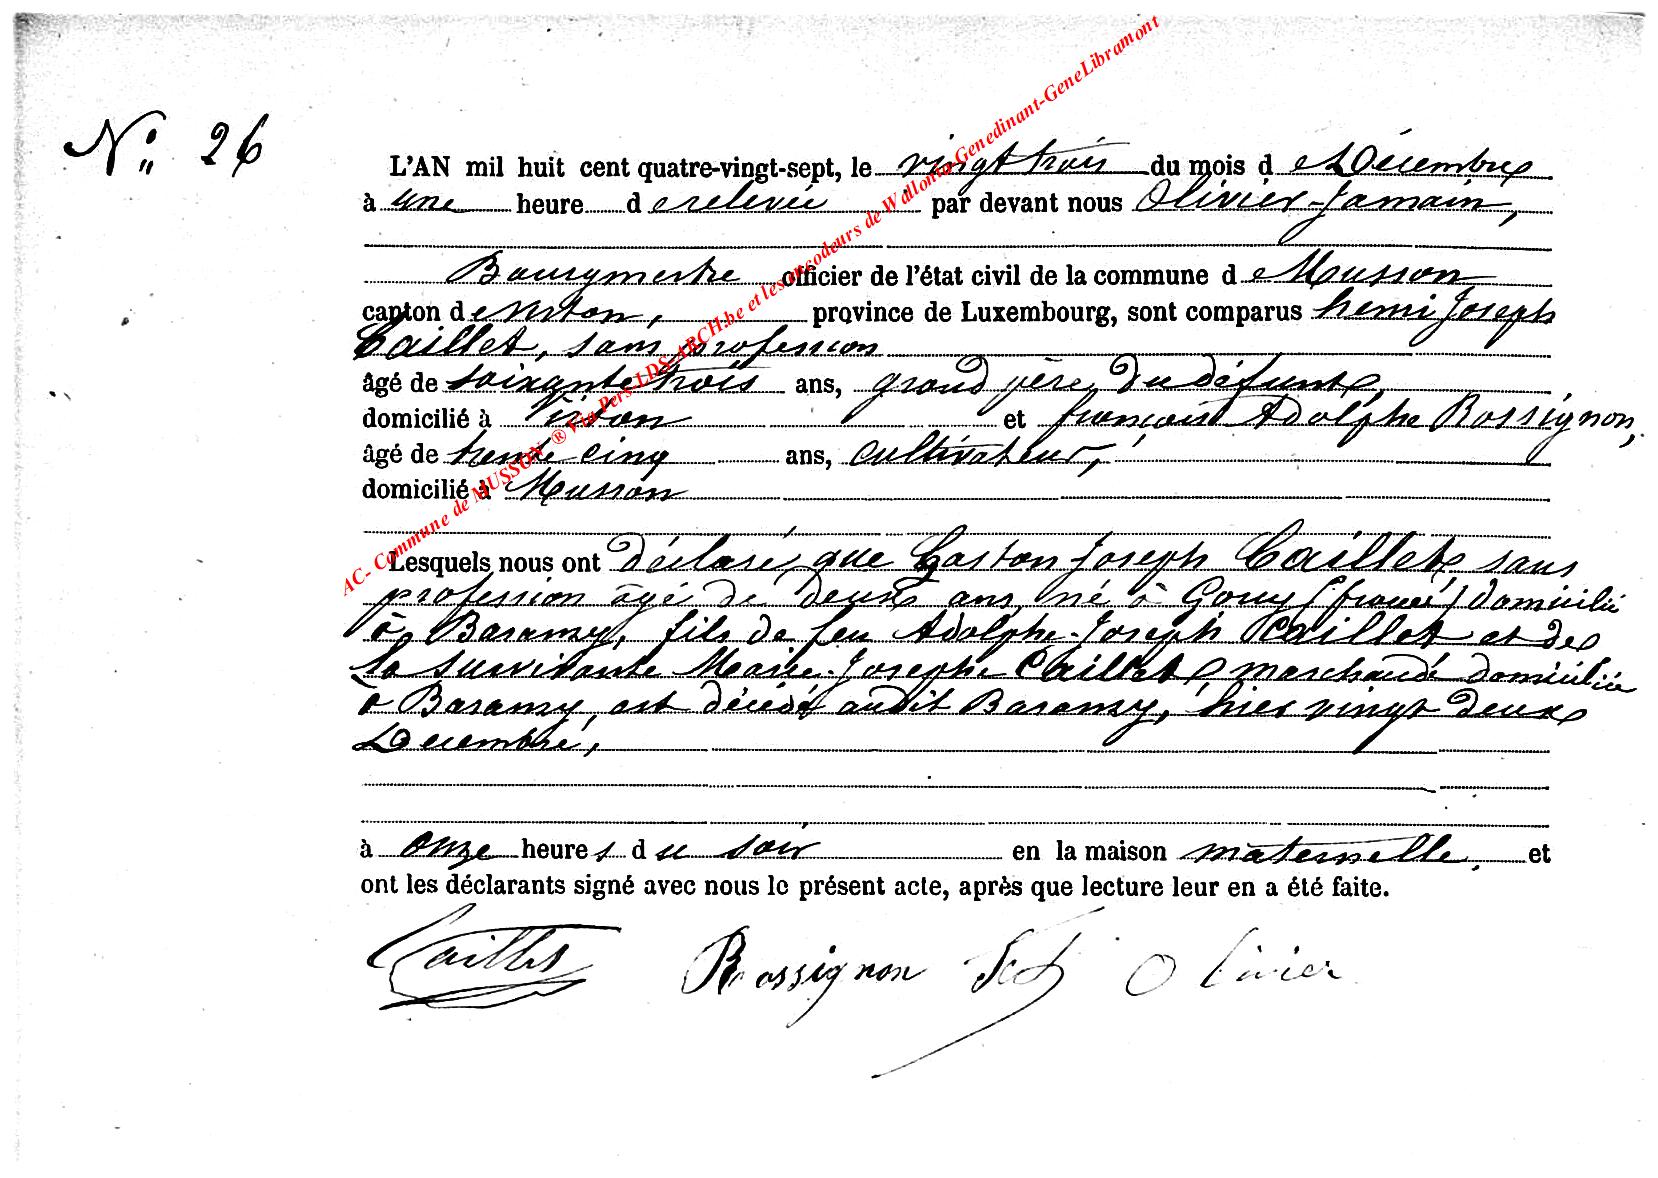 N° 26
L'AN mil huit cent quatre-vingt-sept, le vingt trois du mois d e Décembre
à une heure d e relevée par devant nous Olivier-Jamain,
Bourgmestre officier de l'état civil de la commune d e Musson
canton d e Virton, province de Luxembourg, sont comparus henri Joseph
Caillet, sans profession
âgé de soixante trois ans, grand père du défunt,
domicilié à Virton et françois Adolphe Rossignon,
âgé de trente cinq ans, cultivateur,
domicilié à Musson
Lesquels nous ont déclaré que Gaston Joseph Caillet sans
profession âgé de deux ans, né à Gouy (france) domicilié
à Baranzy, fils de feu Adolphe-Joseph Caillet et de
la survivante Marie-Josephe Caillet marchande domiciliée
à Baranzy, est décédé audit Baranzy, hier vingt deux
Décembre,
à onze heure s d u soir en la maison maternelle, et
ont les déclarants signé avec nous le présent acte, après que lecture leur en a été faite.
Caillet Rossignon Olivier
AC- Commune de MUSSON ® Via Pers LDS-ARCH.be et les encodeurs de Wallonia-Genedinant-GeneLibramont